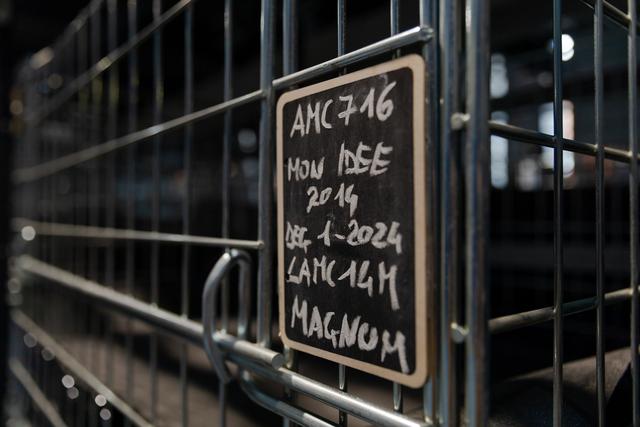 AMC716
MON IDEE
2014
DEG 1-2024
LAMC14M
MAGNUM